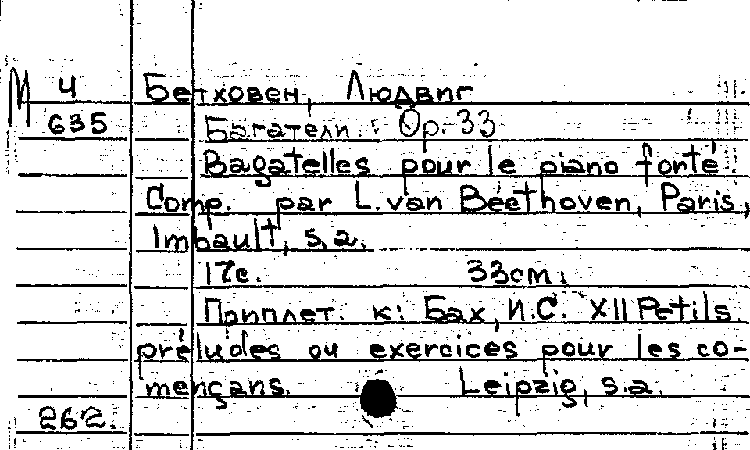 М Ч Бетховен, Людвиг
635 Багатели. Ор. 33
Bagatelles pour le piano forté.
Comp. par L. van Beethoven, Paris,
Imbault, s.a.
17с. 33cm.
Приплет. к: Бах, И.С. XII Petits
préludes ou exercices pour les co-
mençans. Leipzig, s.a.
262.